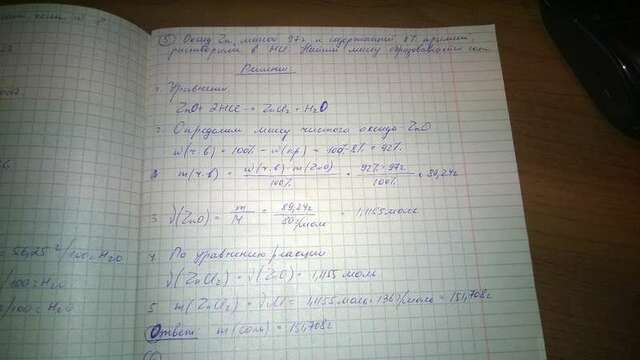 ⑤ Оксид Zn, масса 97г и содержащий 8% примеси,
растворили в HCl. Найти массу образовавшейся соли
Решение:
1. Уравнение
ZnO + 2HCl → ZnCl₂ + H₂O
2. Определим массу чистого оксида ZnO
w(ч.в) = 100% - w(пр) = 100% - 8% = 92%
m(ч.в) = w(ч.в)·m(ZnO) / 100% = 92%·97г / 100% = 89,24г
3. ν(ZnO) = m / M = 89,24г / 80г/моль = 1,1155моль
4. По уравнению реакции
ν(ZnCl₂) = ν(ZnO) = 1,1155 моль
5. m(ZnCl₂) = ν·M = 1,1155моль·136г/моль = 151,708г
Ответ: m(соли) = 151,708г
= 56,25г/100г H₂O
/100г H₂O
/100г H₂O